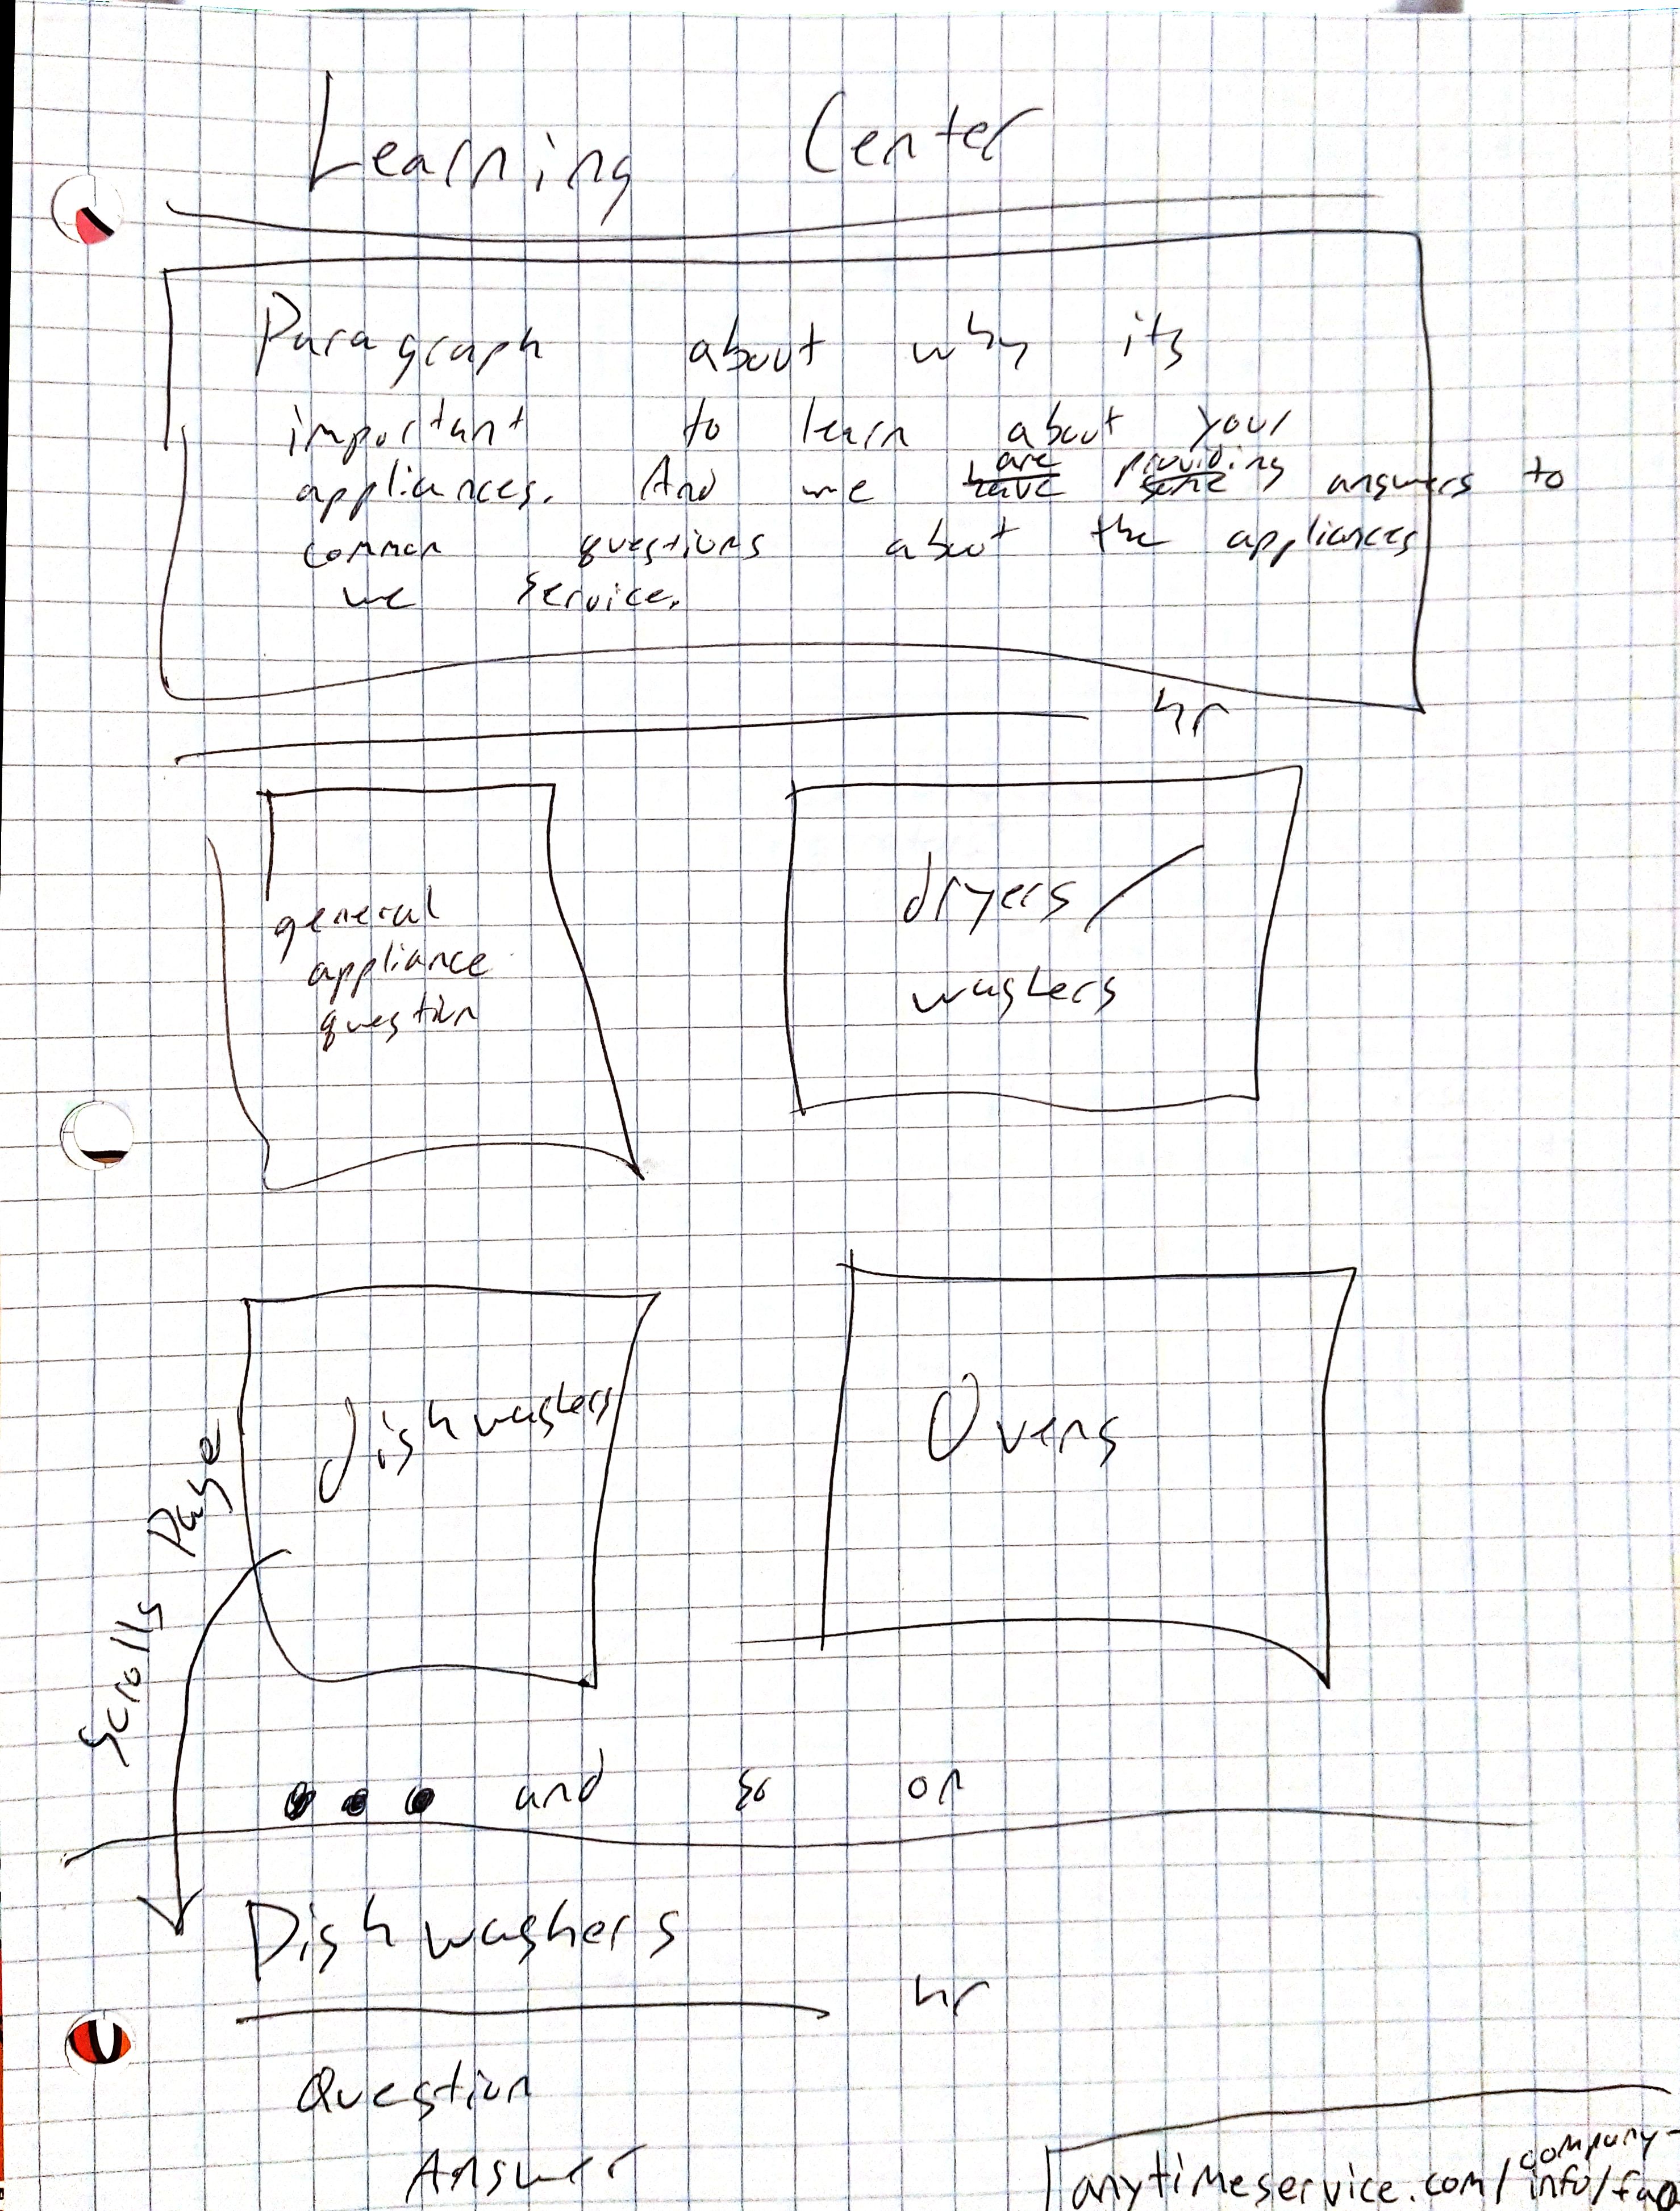 Learning Center
Paragraph about why its
important to learn about your
appliances. And we are providing answers to
common questions about the appliances
we service.
hr
general
appliance
question
dryers/
washers
dishwashers
Ovens
Scrolls Page
... and so on
Dishwashers
hr
Question
Answer
company-
anytimeservice.com/info/faq